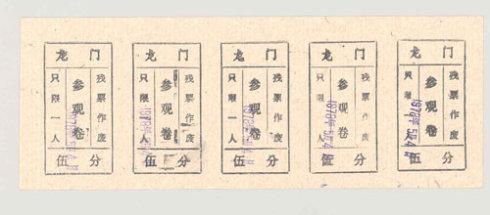 龙门
残票作废
参观卷
只限一人
伍分
龙门
残票作废
参观卷
只限一人
伍分
龙门
残票作废
参观卷
只限一人
伍分
龙门
残票作废
参观卷
只限一人
伍分
龙门
残票作废
参观卷
只限一人
伍分